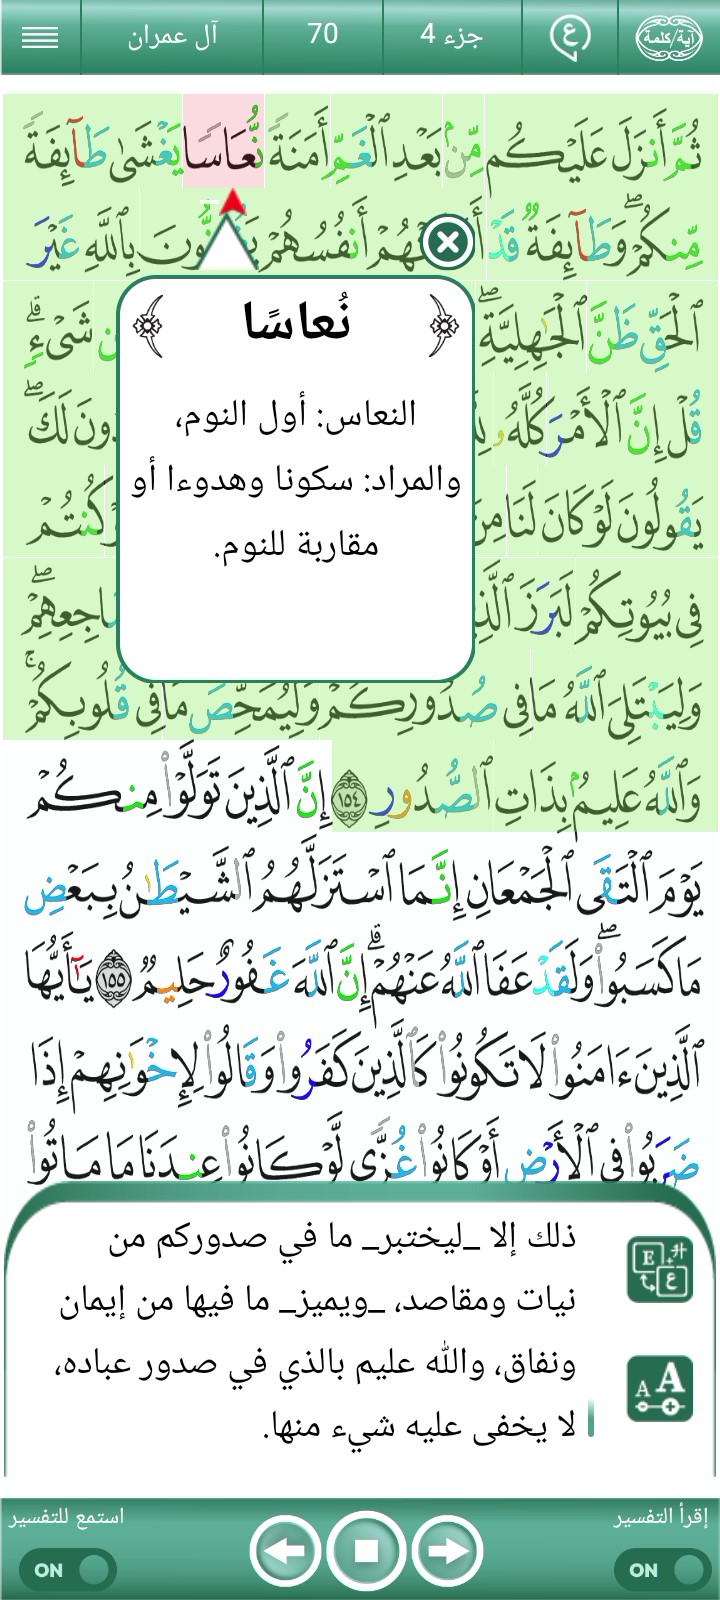 آية/كلمة
ع
جزء 4
70
آل عمران
ثُمَّ أَنزَلَ عَلَيْكُم مِّنۢ بَعْدِ ٱلْغَمِّ أَمَنَةً نُّعَاسًا يَغْشَىٰ طَآئِفَةً
مِّنكُمْ ۖ وَطَآئِفَةٌ قَدْ أَنفُسُهُمْ بِٱللَّهِ غَيْرَ
ٱلْحَقِّ ظَنَّ ٱلْجَٰهِلِيَّةِ ۖ شَىْءٍ ۗ
قُلْ إِنَّ ٱلْأَمْرَ كُلَّهُۥ لَكَ ۖ
يَقُولُونَ لَوْ كَانَ لَنَا مِنَ كُنتُمْ
فِى بُيُوتِكُمْ لَبَرَزَ
وَلِيَبْتَلِىَ ٱللَّهُ مَا فِى صُدُورِكُمْ وَلِيُمَحِّصَ مَا فِى قُلُوبِكُمْ ۚ
وَٱللَّهُ عَلِيمٌۢ بِذَاتِ ٱلصُّدُورِ ١٥٤ إِنَّ ٱلَّذِينَ تَوَلَّوْا۟ مِنكُمْ
يَوْمَ ٱلْتَقَى ٱلْجَمْعَانِ إِنَّمَا ٱسْتَزَلَّهُمُ ٱلشَّيْطَٰنُ بِبَعْضِ
مَا كَسَبُوا۟ ۖ وَلَقَدْ عَفَا ٱللَّهُ عَنْهُمْ ۗ إِنَّ ٱللَّهَ غَفُورٌ حَلِيمٌ ١٥٥ يَٰٓأَيُّهَا
ٱلَّذِينَ ءَامَنُوا۟ لَا تَكُونُوا۟ كَٱلَّذِينَ كَفَرُوا۟ وَقَالُوا۟ لِإِخْوَٰنِهِمْ إِذَا
ضَرَبُوا۟ فِى ٱلْأَرْضِ أَوْ كَانُوا۟ غُزًّى لَّوْ كَانُوا۟ عِندَنَا مَا مَاتُوا۟
نُعاسًا
النعاس: أول النوم،
والمراد: سكونا وهدوءا أو
مقاربة للنوم.
ذلك إلا _ليختبر_ ما في صدوركم من
نيات ومقاصد، _ويميز_ ما فيها من إيمان
ونفاق، والله عليم بالذي في صدور عباده،
لا يخفى عليه شيء منها.
E
ع
A A
إقرأ التفسير
استمع للتفسير
ON
ON